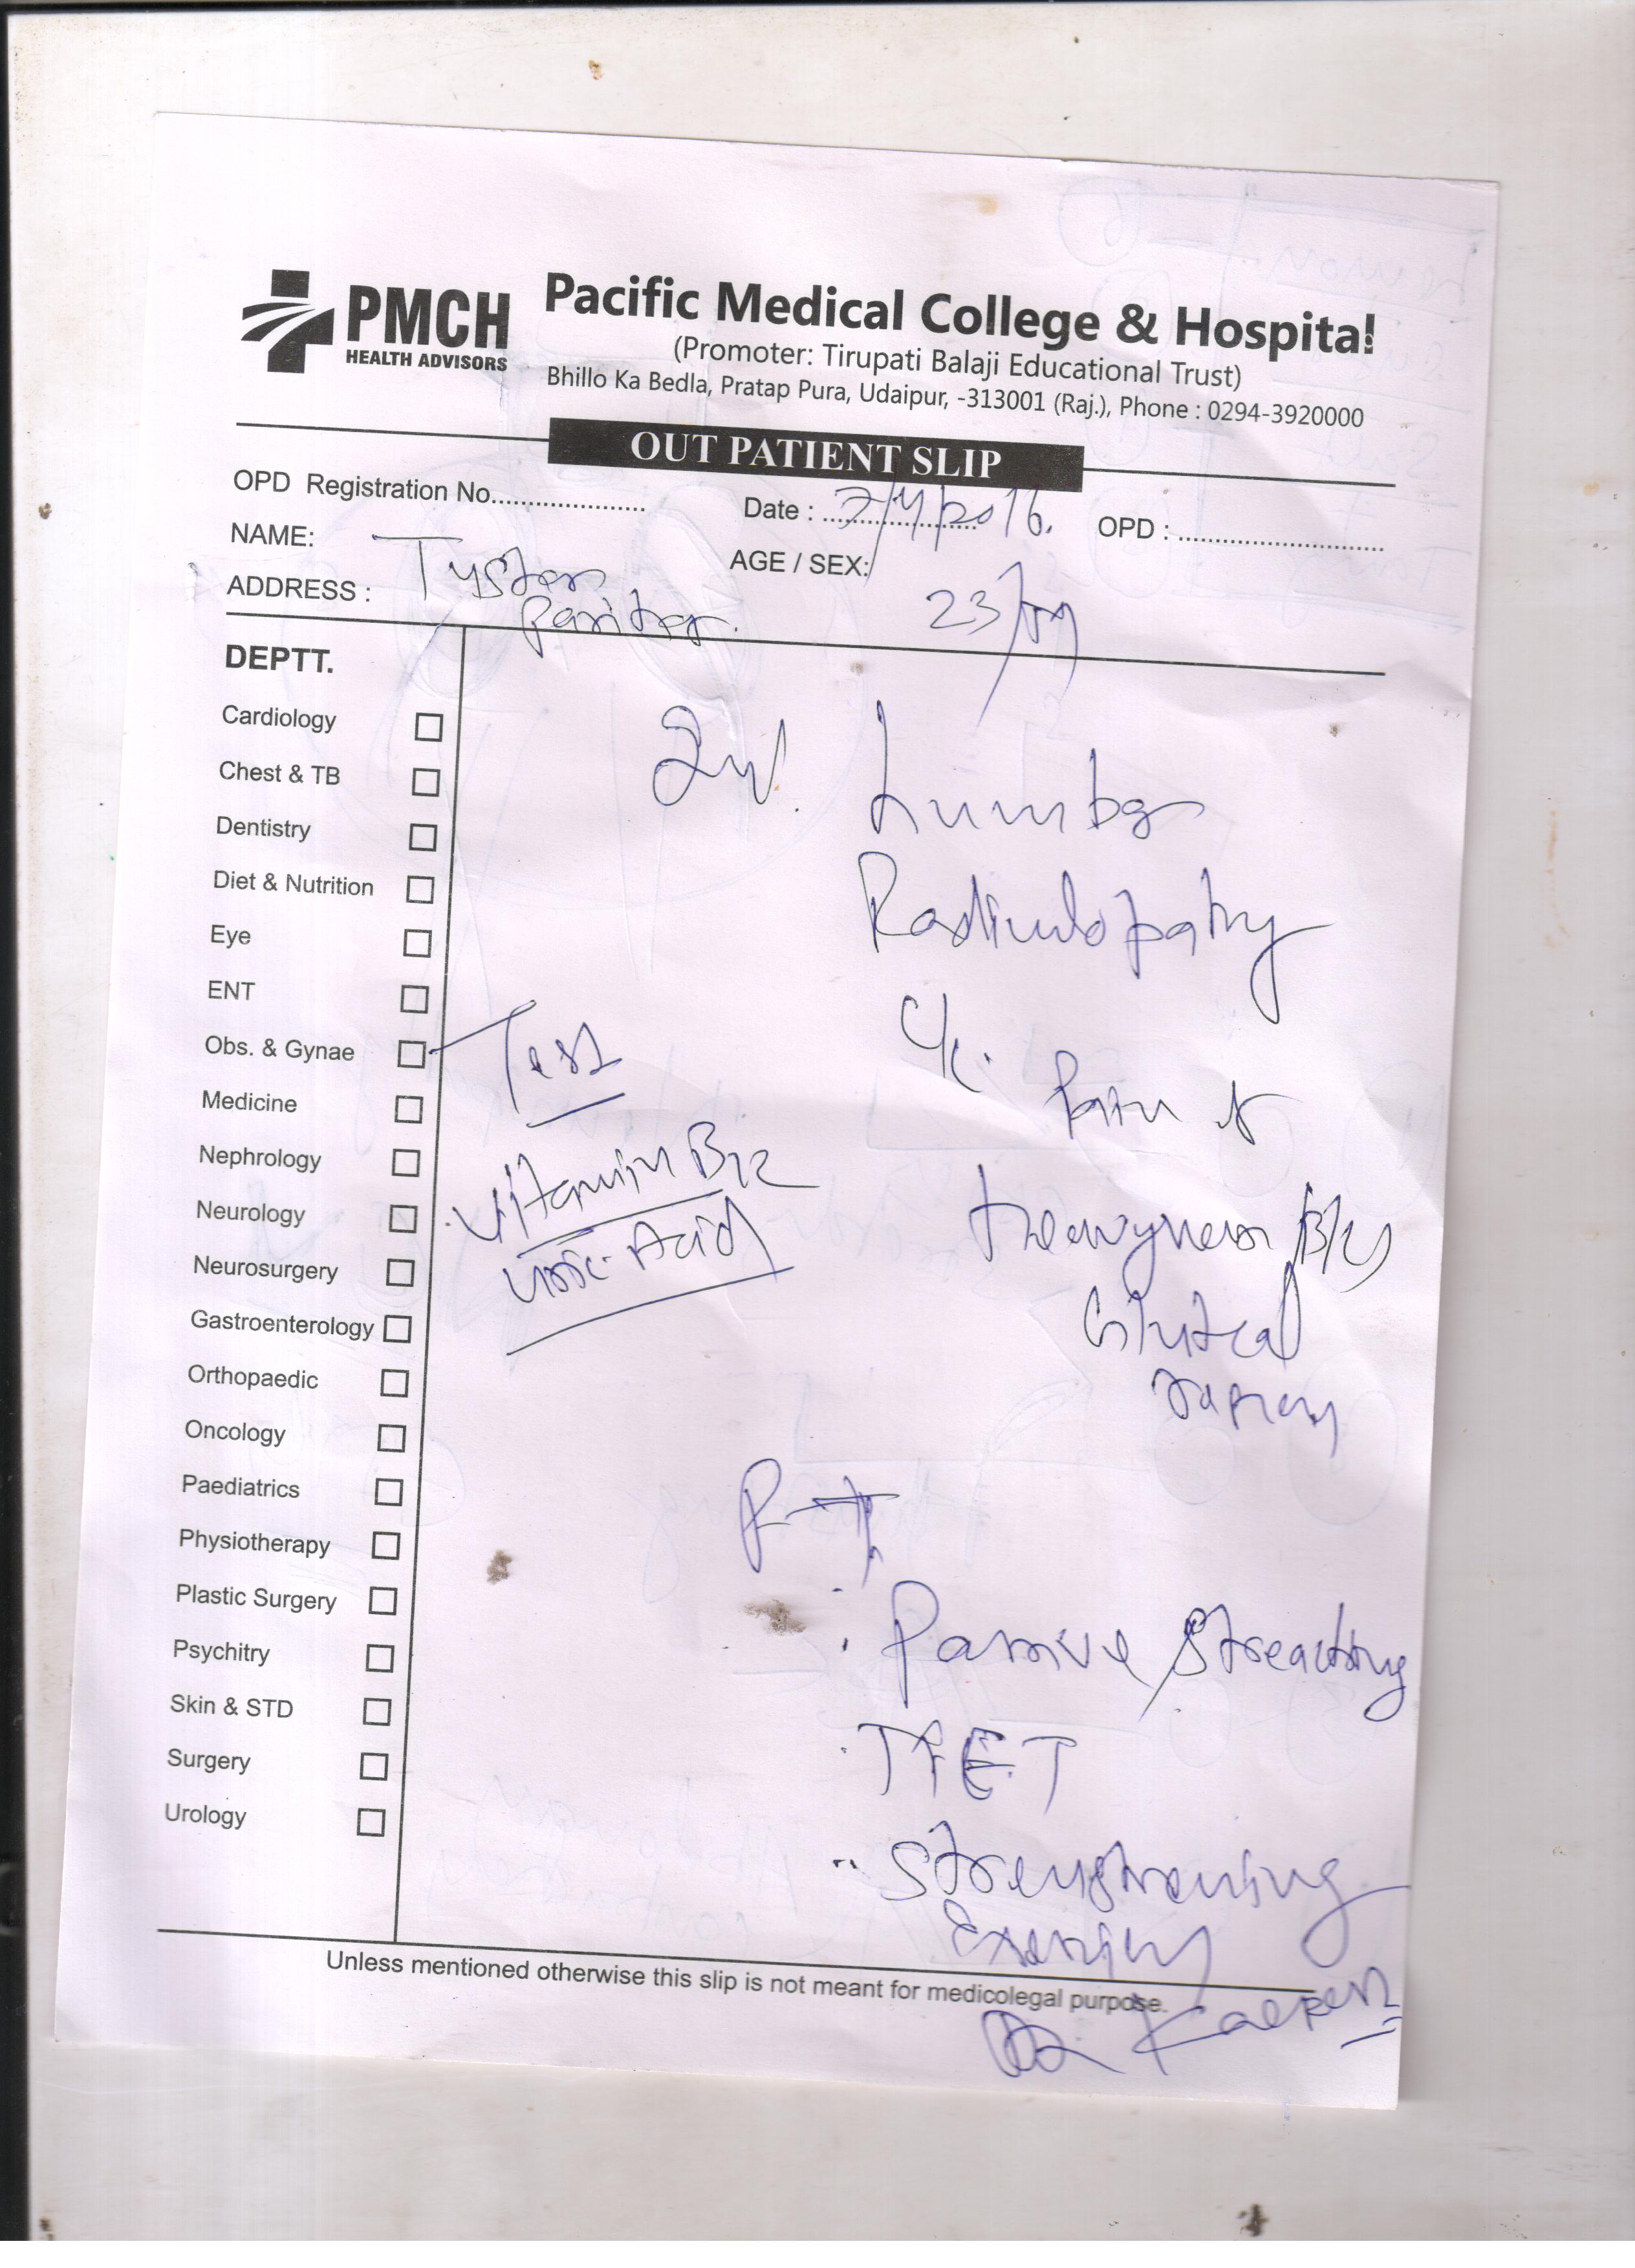 PMCH
HEALTH ADVISORS
Pacific Medical College & Hospital
(Promoter: Tirupati Balaji Educational Trust)
Bhillo Ka Bedla, Pratap Pura, Udaipur, -313001 (Raj.), Phone : 0294-3920000
OUT PATIENT SLIP
OPD Registration No.......................
Date : ...................... /2016.
OPD : .............................
NAME:
AGE / SEX:
23/
ADDRESS :
DEPTT.
Cardiology
Chest & TB
Dentistry
Diet & Nutrition
Eye
ENT
Obs. & Gynae
Medicine
Nephrology
Neurology
Neurosurgery
Gastroenterology
Orthopaedic
Oncology
Paediatrics
Physiotherapy
Plastic Surgery
Psychitry
Skin & STD
Surgery
Urology
Test
Vitamin B12
Uric Acid
Lumbar
Radiculopathy
C/c.
Pain &
Heavyness B/L
Gluteal
region
Passive Streaching
Strengthening
Exercises
Dr Kalpesh
Unless mentioned otherwise this slip is not meant for medicolegal purpose.